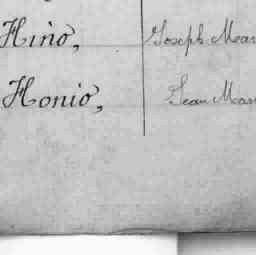 Hino, Joseph Mar
Honio, Jean Mar